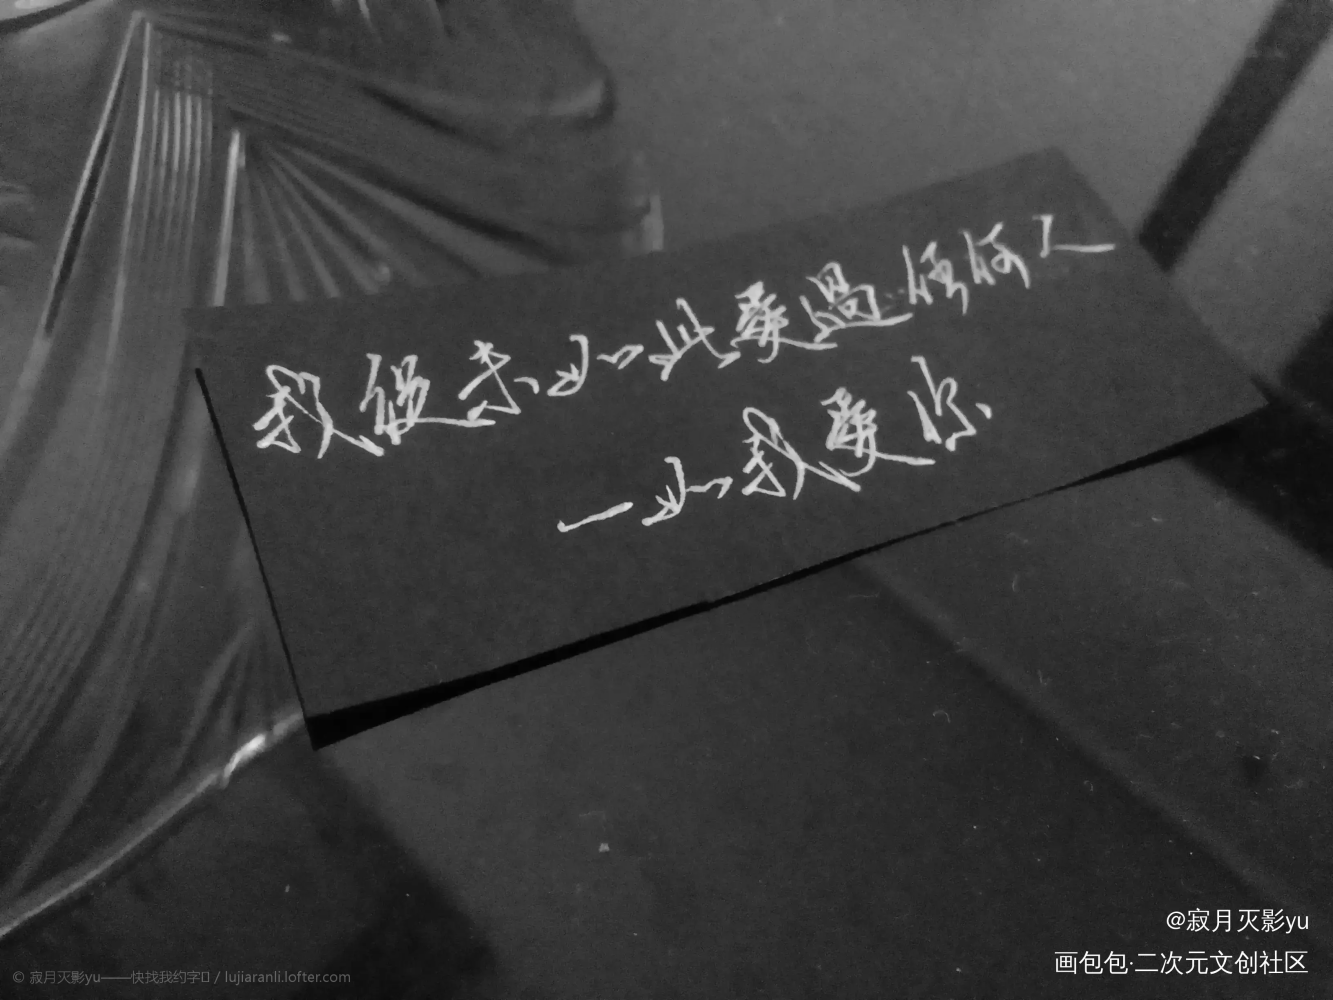 我從未如此愛過任何人
一如我愛你
@寂月灭影yu
画包包·二次元文创社区
© 寂月灭影yu——快找我约字 / lujiaranli.lofter.com